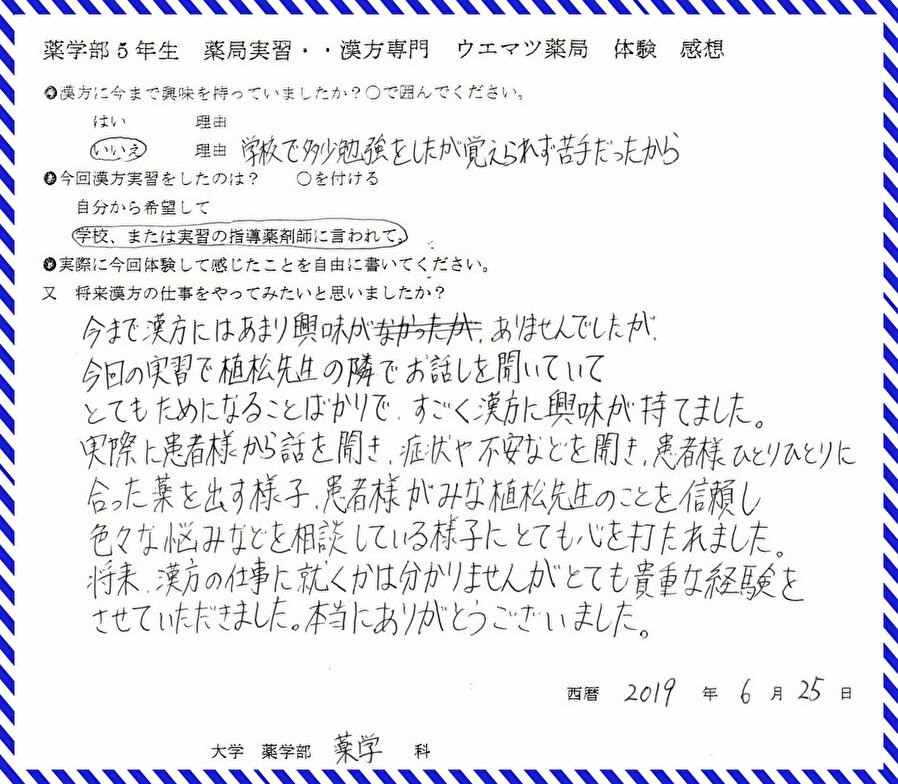 薬学部5年生 薬局実習・・漢方専門 ウエマツ薬局 体験 感想
✪漢方に今まで興味を持っていましたか?○で囲んでください。
はい 理由
いいえ 理由 学校で多少勉強をしたが覚えられず苦手だったから
✪今回漢方実習をしたのは? ○を付ける
自分から希望して
学校、または実習の指導薬剤師に言われて。
✪実際に今回体験して感じたことを自由に書いてください。
又 将来漢方の仕事をやってみたいと思いましたか?
今まで漢方にはあまり興味がなかったが、ありませんでしたが、
今回の実習で植松先生の隣でお話しを聞いていて
とてもためになることばかりで、すごく漢方に興味が持てました。
実際に患者様から話を聞き、症状や不安などを聞き、患者様ひとりひとりに
合った薬を出す様子、患者様がみな植松先生のことを信頼し
色々な悩みなどを相談している様子にとても心を打たれました。
将来、漢方の仕事に就くかは分かりませんがとても貴重な経験を
させていただきました。本当にありがとうございました。
西暦 2019 年 6 月 25 日
大学 薬学部 薬学 科